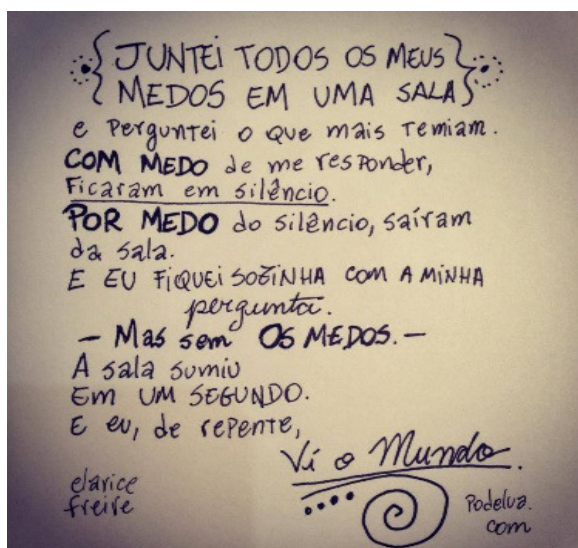 JUNTEI TODOS OS MEUS
MEDOS EM UMA SALA
e perguntei o que mais temiam.
COM MEDO de me responder,
Ficaram em silêncio.
POR MEDO do silêncio, saíram
da sala.
E EU FIQUEI SOZINHA COM A MINHA
pergunta.
— Mas sem OS MEDOS. —
A sala sumiu
Em UM SEGUNDO.
E eu, de repente,
Vi o Mundo.
clarice
freire
Podelua.
com